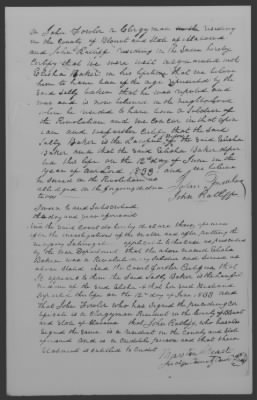 We John Fowler a Clergyman residing
in the County of Blount and State of Alabama
and John Ratliff residing in the same hereby
Certify that we were well acquainted with
Elisha Baker in his lifetime that we believe
him to have been of the age represented by the
said Sally Baker that he was reputed and
was and is now believed in the neighborhood
where he resided to have been a Soldier of
the Revolution and we concur in that opin
ion and we further Certify that the said
Sally Baker is the of the said Elisha
Baker and that the said Elisha Baker depar
ted this life on the 12th day of June in the
year of our Lord 1833 and we believe
he served in the Revolution as
alledged in the foregoing declara
tion
John Fowler
John Ratliff
Sworn to and Subscribed
the day and year aforesaid
And the said Court do hereby declare their opinion
upon the investigation of the matter and after putting the
by the War Department that the above named Elisha
Baker was a Revolutionary Soldier and served as
above stated And the Court further Certifies that
it appears to them that said Sally Baker is the
of the said Elisha that her said Husband
departed this life on the 12th day of June 1833 and
that John Fowler who has signed the preceding Cer
tificate is a Clergyman Resident in the County of Blount
and State of Alabama that John Ratliff who has also
signed the same is a resident in the County and State
aforesaid and is a credible person and that their
statement is entitled to credit